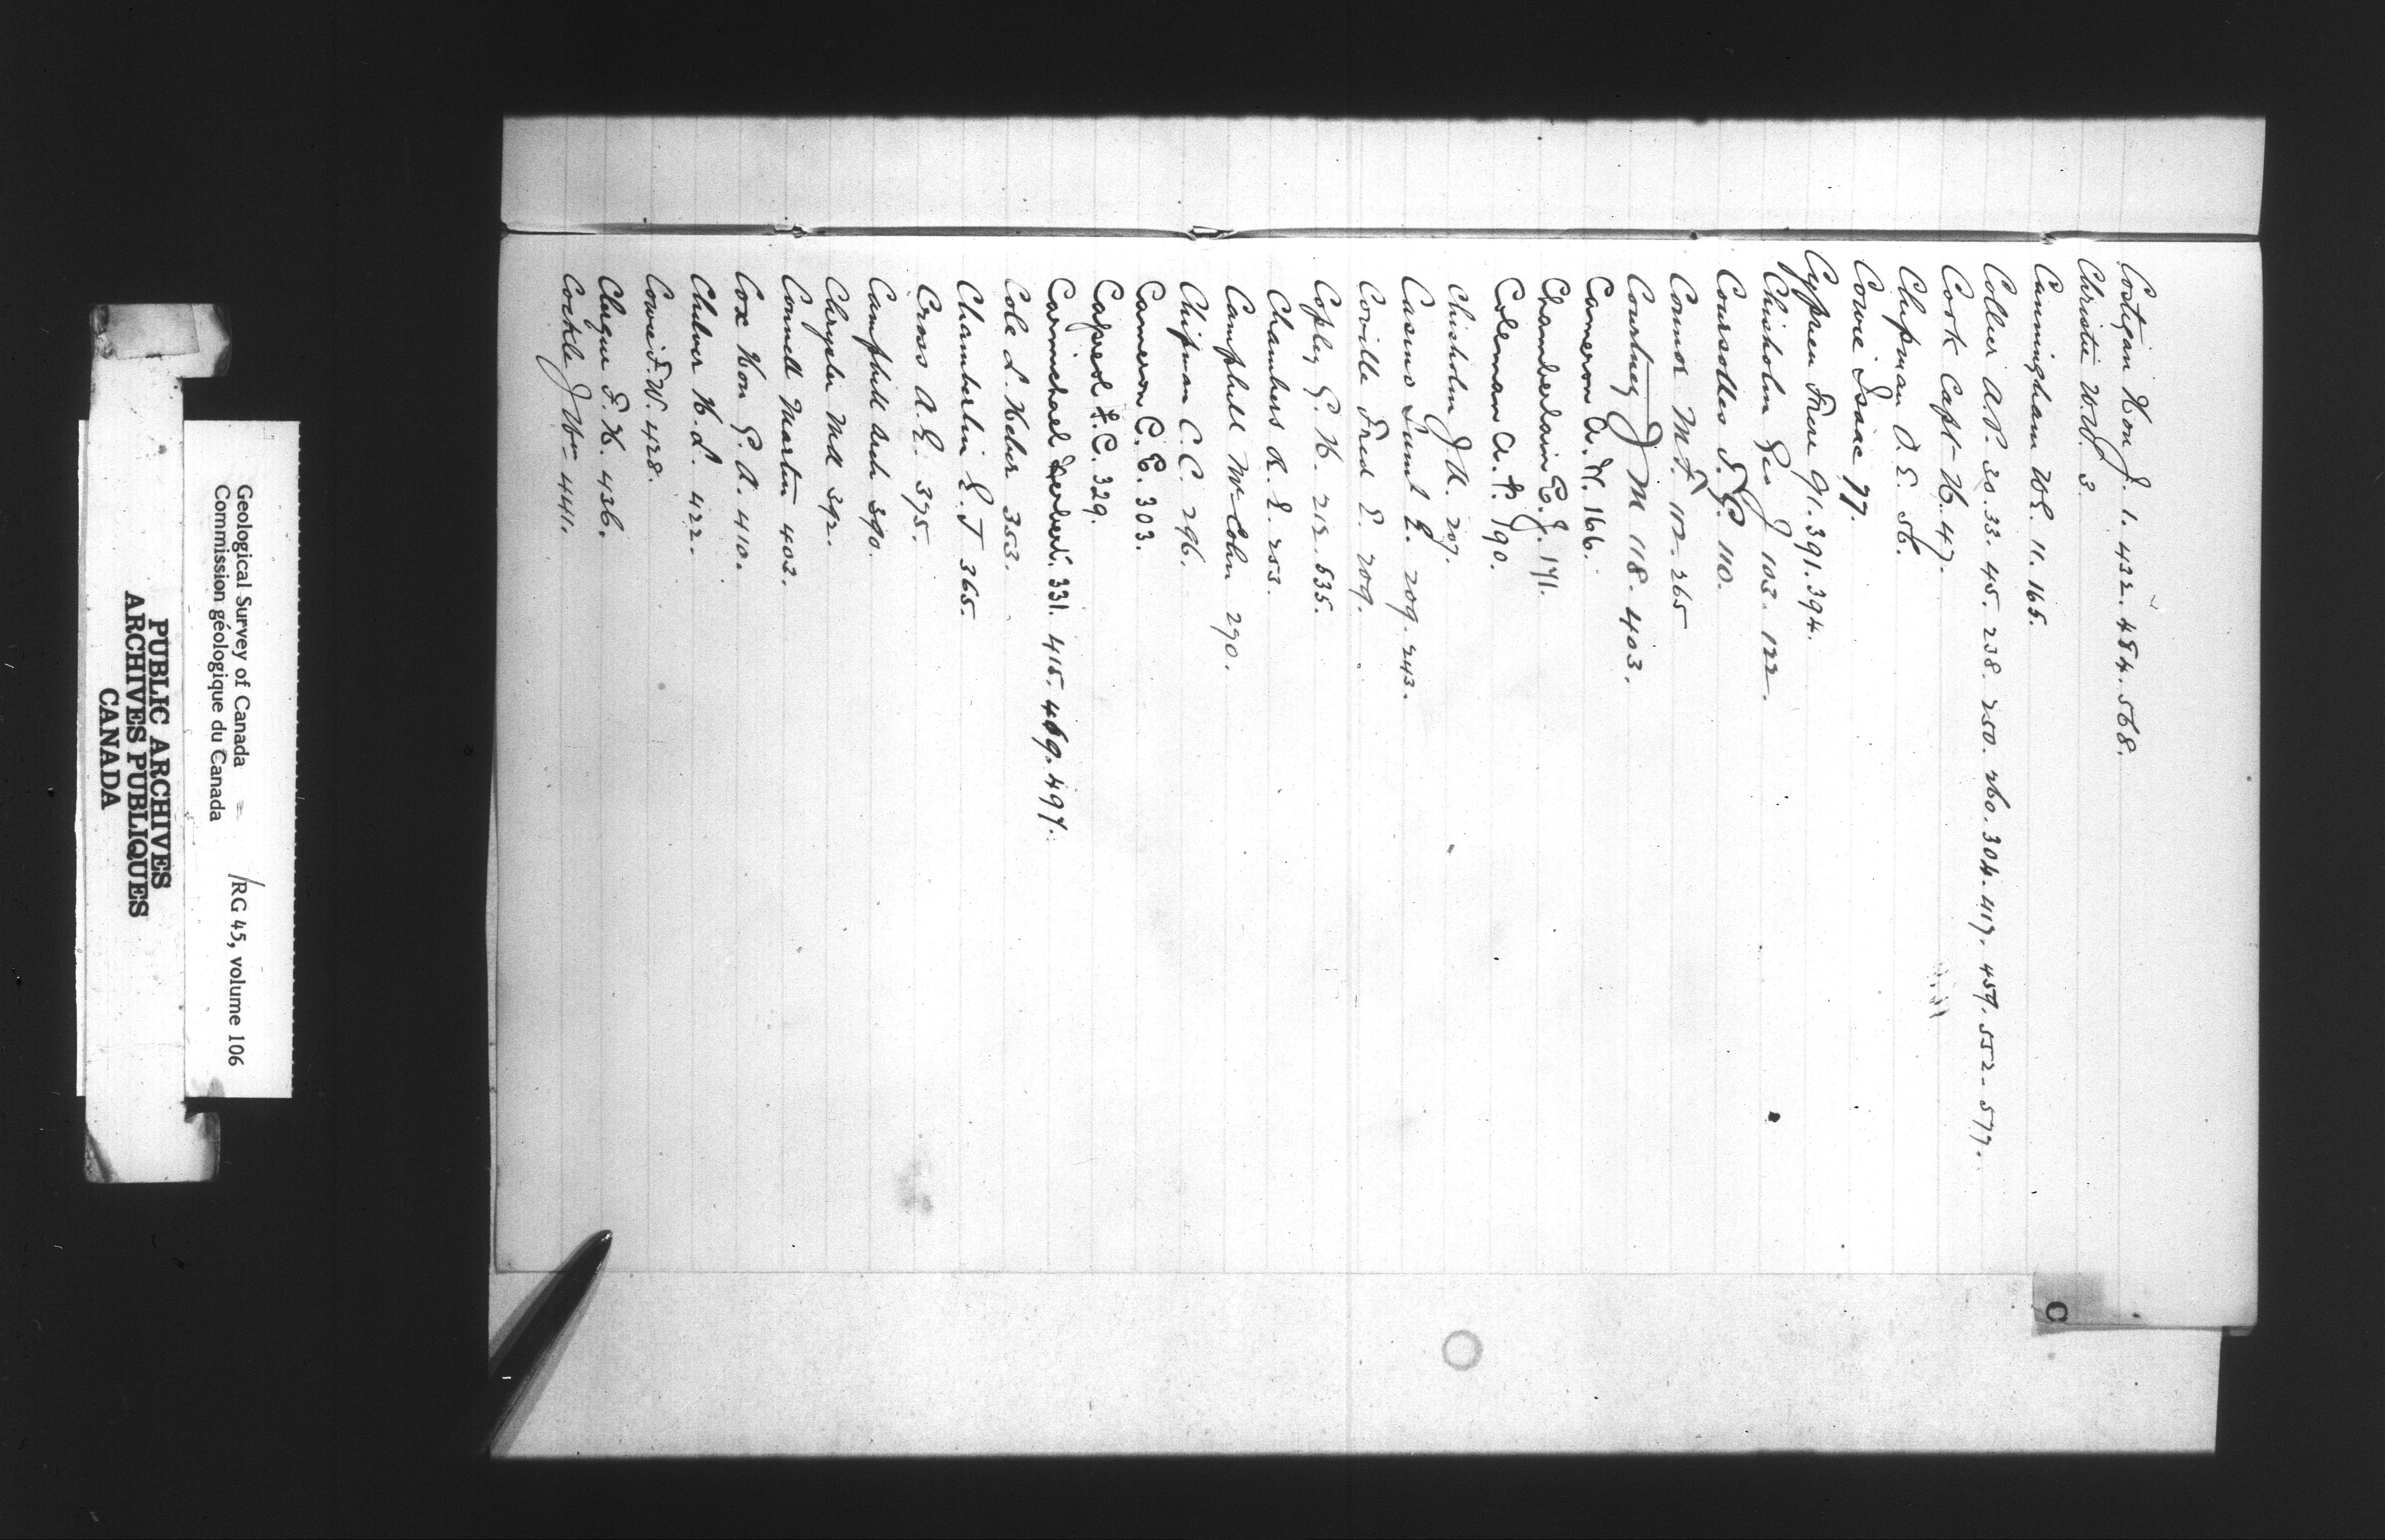 Costigan Hon J. 1. 432. 484. 568.
Christie W.W. 3.
Cunningham W.S. 11. 165.
Collier A.P. 30. 33. 45. 238. 250. 260. 304. 417. 459. 552. 577.
Cook Capt H. 47.
Chipman O.E. 56.
Cowie Isaac 77.
Cyprien Frere 91. 391. 394.
Chisholm Geo J 103. 122.
Coursolles 110.
Connor M.F. 112. 265
Courtney J M 118. 403.
Cameron A. H. 166.
Chamberlain E. J. 171.
Coleman A. P. 190.
Chisholm J. A. 207.
Casino Saml E. 209. 243.
Coville Fred E. 209.
Copley G. H. 212. 535.
Chambers R. E. 253.
Campbell Wm Colin 290.
Chipman C.C. 296.
Cameron C. E. 303.
Capreol F. C. 329.
Carmichael Herbert. 331. 415. 469. 497.
Cole L. Heber 353.
Chamberlin E. T 365.
Cross A. E. 375.
Campbell Arch 390.
Chrysler Mdl 392.
Connell Martin 402.
Cox Hon G. A. 410.
Chilver H. L. 422.
Cowie F. W. 428.
Clergue F. H. 436.
Cockle J Wm 441.
C
Geological Survey of Canada
Commission géologique du Canada
RG 45, volume 106
PUBLIC ARCHIVES
ARCHIVES PUBLIQUES
CANADA